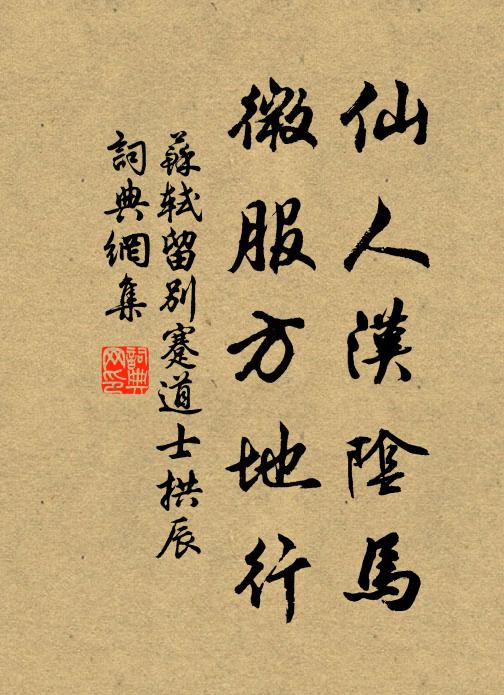 仙人漢陰馬
微服方地行
蘇軾留別蹇道士拱辰
詞典網集
詞典網印